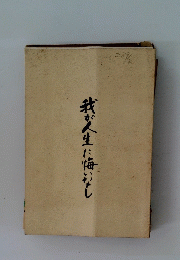 我が人生に悔いなし